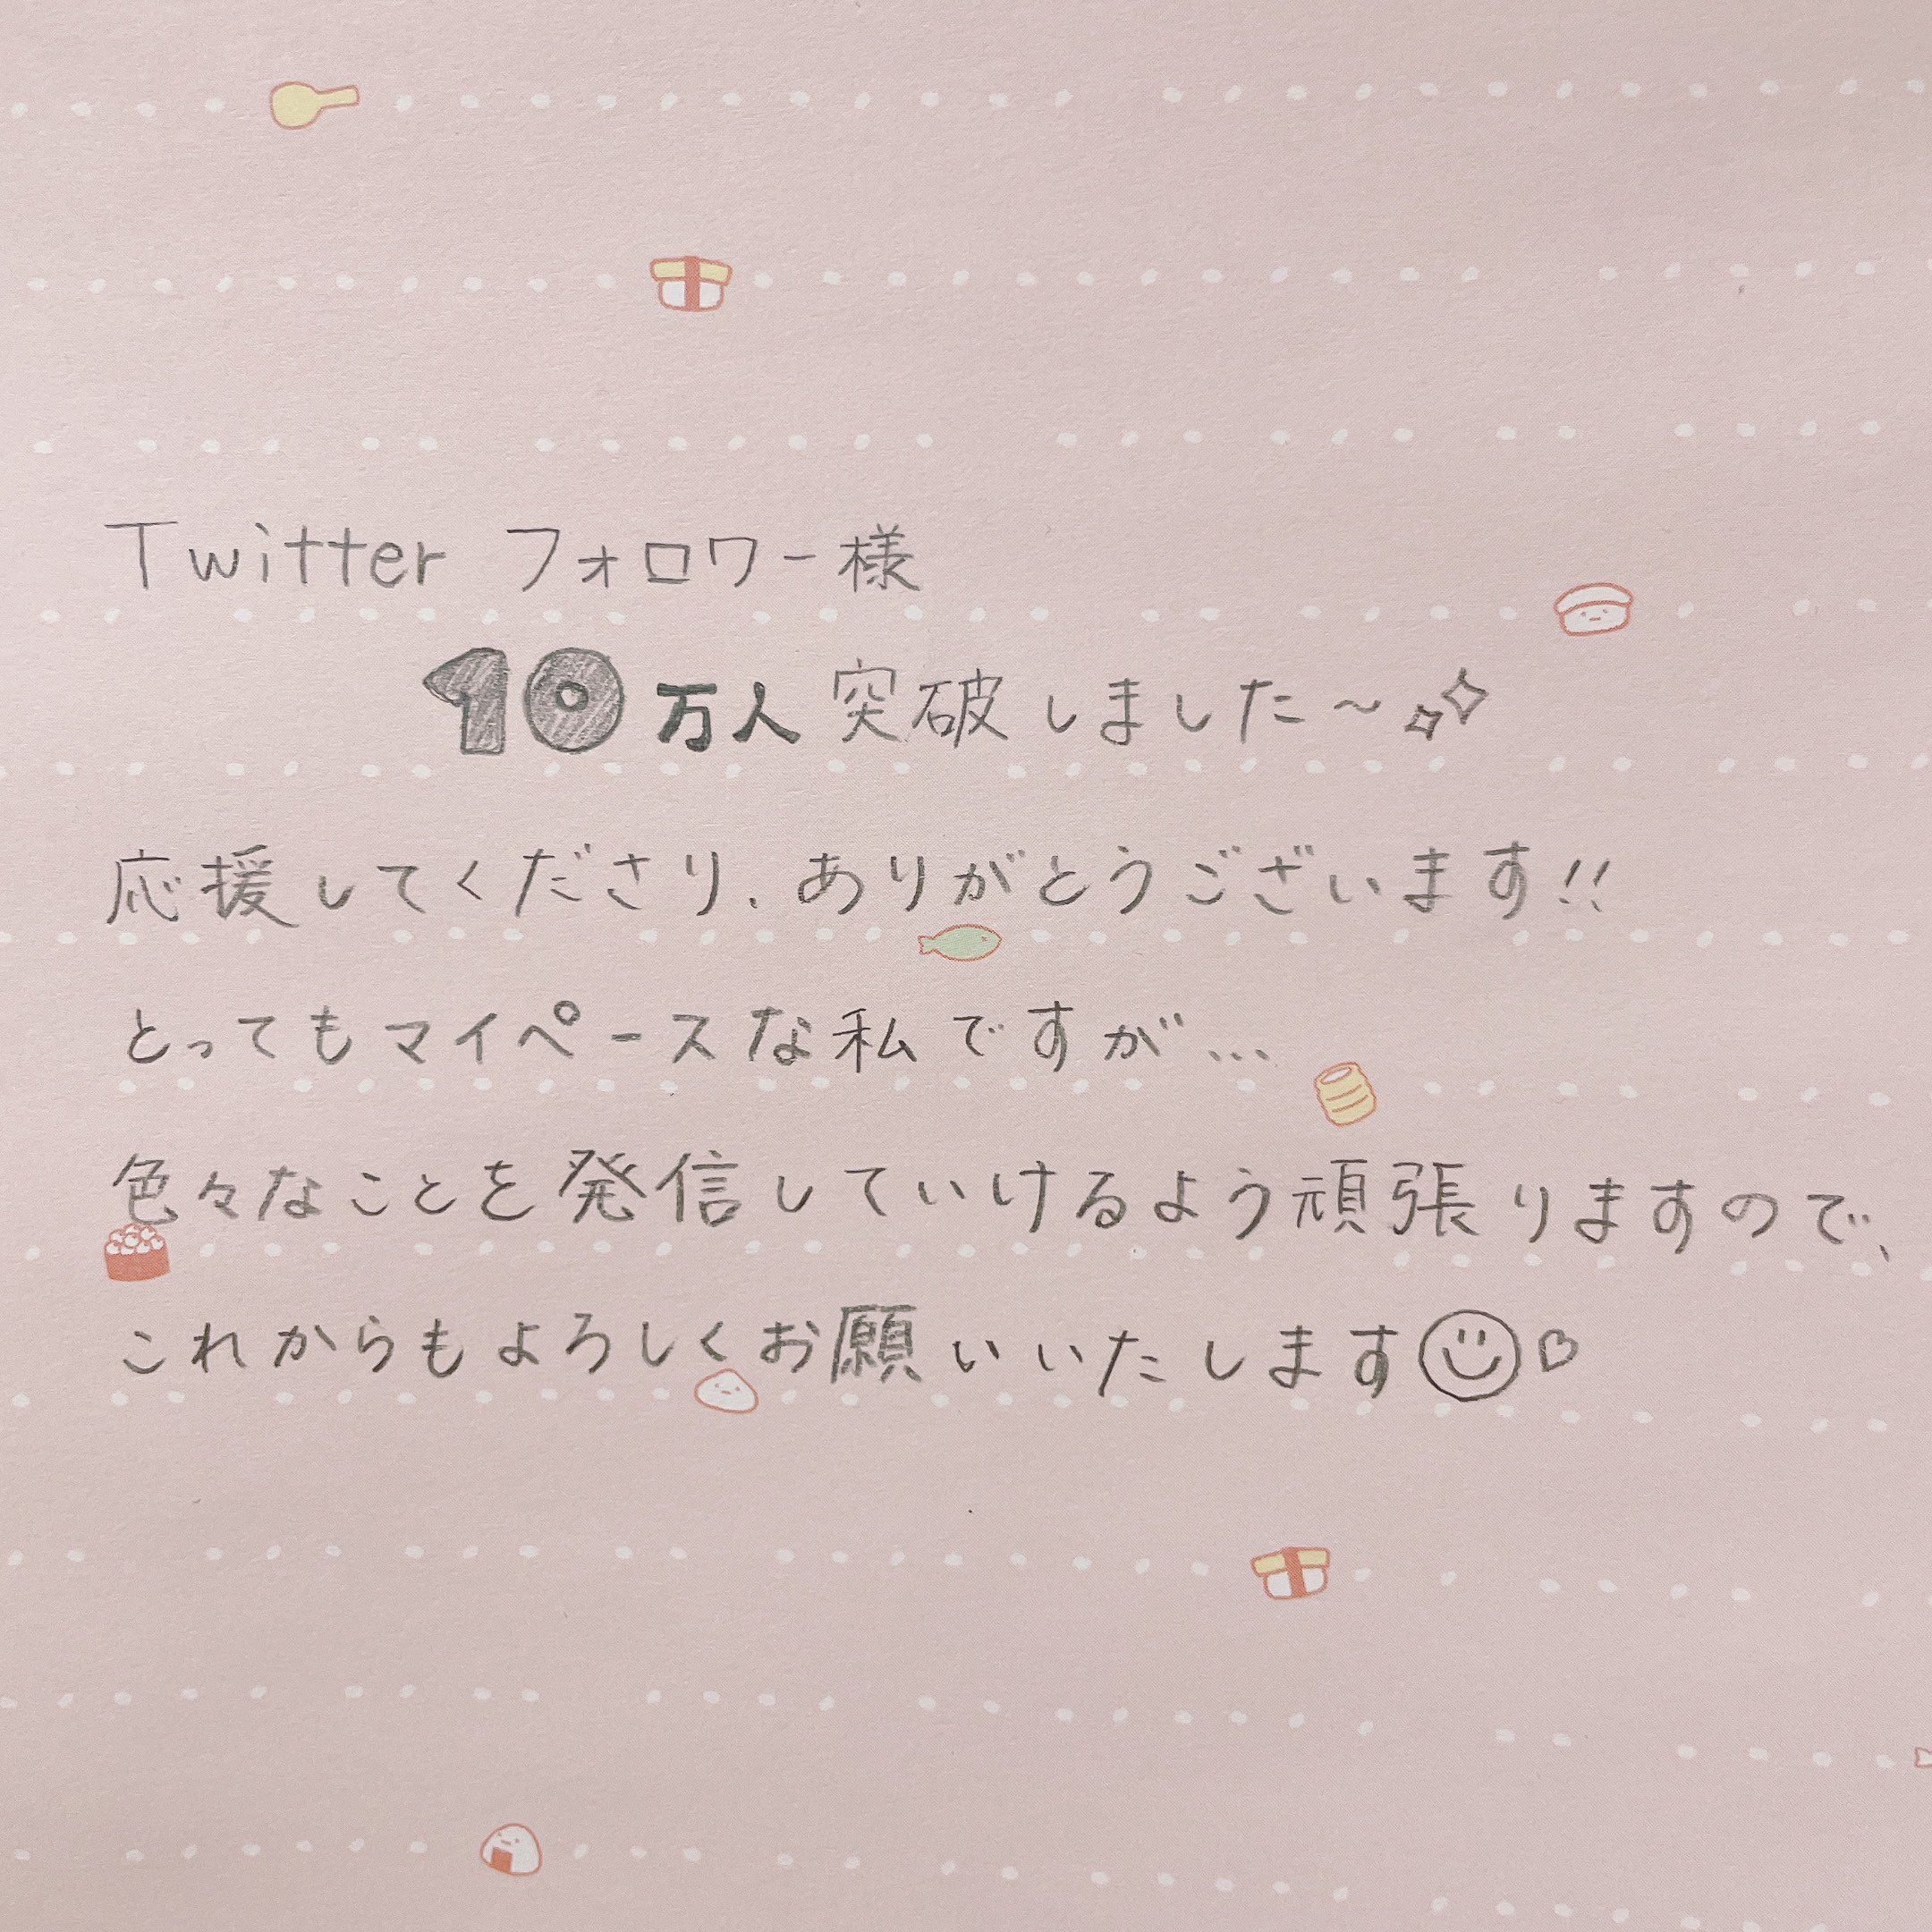 Twitter フォロワー様
10万人突破しました～
応援してくださり、ありがとうございます!!
とってもマイペースな私ですが…
色々なことを発信していけるよう頑張りますので、
これからもよろしくお願いいたします